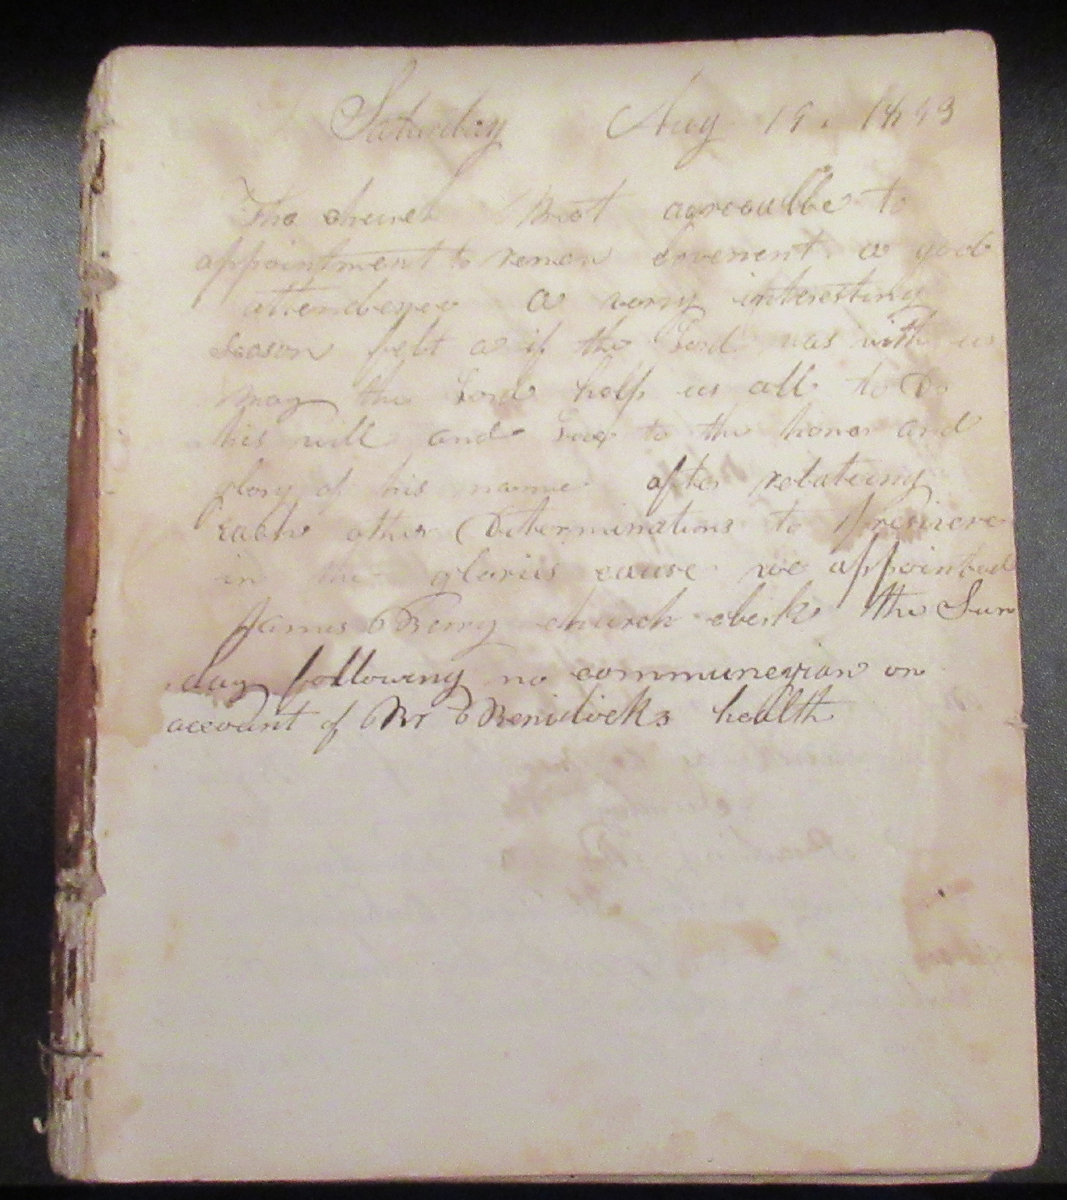 Saturday Aug 19. 1893
The church Met agreeable to
appointment to renew covenent a good
attendence a very interesting
season felt as if the Lord was with us
may the Lord help us all to Do
his will and Live to the honor and
glory of his name after relateing
Each other Determinations to preserve
in the glorius cause we appointed
James Berry church clerk the Sun
day following no communegion on
account of Mr Benidicks health